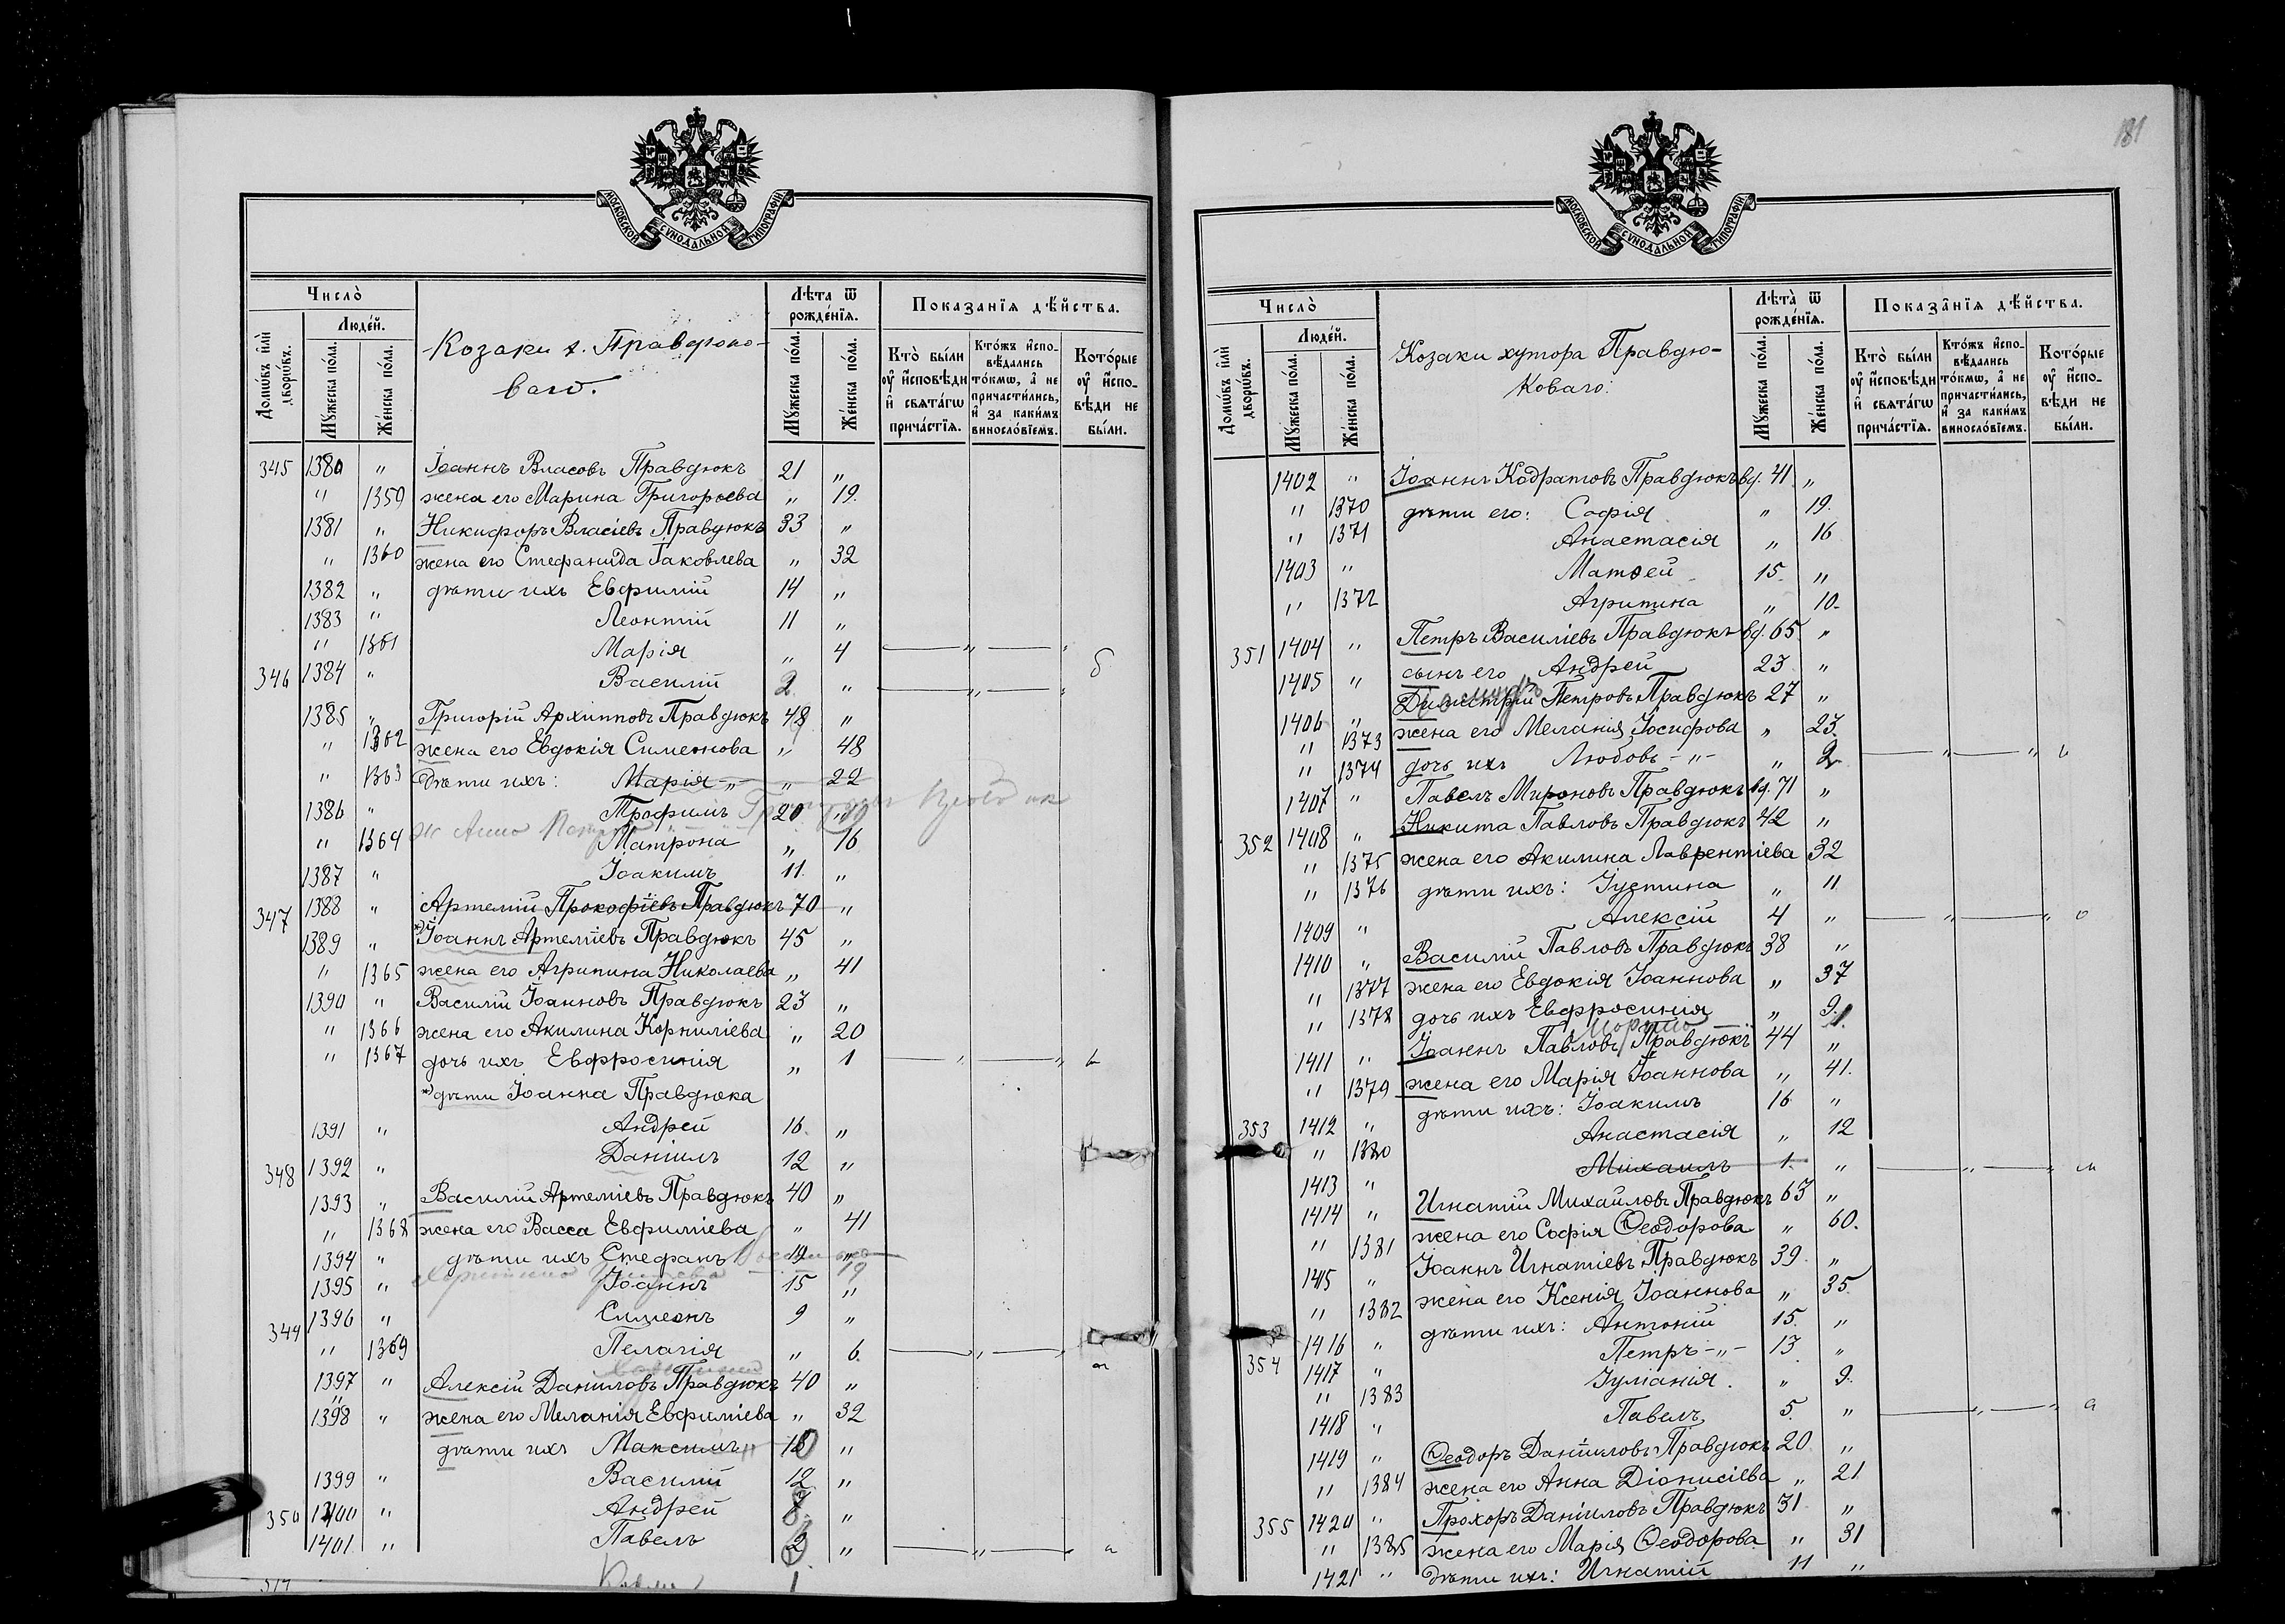 МОСКОВСКОЙ СѴНОДАЛЬНОЙ ТИПОГРАФІИ
Число̀
Людéй.
Домѡ́въ и҆лѝ дворѡ́въ.
Мꙋ́жеска по́ла.
Же́нска по́ла.
Козаки х. Правдюко-
ваго.
Лѣта ѿ рожде́нїѧ.
Мꙋ́жеска по́ла.
Же́нска по́ла.
Показа́нїѧ дѣ́йства.
Кто̀ бы́ли оу҆ и҆сповѣди и҆ свѧта́гѡ прича́стїѧ.
Кто́жъ и҆спо-вѣдались то́кмѡ, а҆ не причасти́лись, и҆ за каки́мъ винослѡ́вїемъ.
Кото́рые оу҆ и҆спо-вѣди не бы́ли.
345 1380 " Іоаннъ Власовъ Правдюкъ 21 "
" 1359 жена его Марина Григорьева " 19.
1381 " Никифоръ Власіевъ Правдюкъ 33 "
" 1360 жена его Стефанида Іаковлева " 32
1382 " дѣти ихъ Евфимій 14 "
1383 " Леонтій 11 "
" 1361 Марія " 4 — " — "
346 1384 " Василій 2 " — " — " б
1385 " Григорій Архиповъ Правдюкъ 48 "
" 1362 жена его Евдокія Симеонова " 48
" 1363 дѣти ихъ: Марія " " 22
1386 " Трофимъ 20 "
" 1364 Матрона " 16
1387 " Іоакимъ 11. "
347 1388 " Артемій Прокофіевъ Правдюкъ 70 "
1389 " *) Іоаннъ Артеміевъ Правдюкъ 45 "
" 1365 жена его Агрипина Николаева " 41
1390 " Василій Іоанновъ Правдюкъ 23 "
" 1366 жена его Акилина Корниліева " 20
" 1367 дочь ихъ Евфросинія " 1 — " — "
*) дѣти Іоанна Правдюка
1391 " Андрей 16. "
348 1392 " Даніилъ 12 "
1393 " Василій Артеміевъ Правдюкъ 40 "
" 1368 жена его Васса Евфиміева " 41
1394 " дѣти ихъ Стефанъ 19 "
1395 " Іоаннъ 15 "
1396 " Симеонъ 9 "
349 " 1369 Пелагія " 6. — " — "
1397 " Алексій Даниловъ Правдюкъ 40 "
1398 " жена его Меланія Евфиміева " 32
дѣти ихъ Максимъ "
1399 " Василій 12 "
350 1400 " Андрей 8 "
1401 " Павелъ 2 " — " — "
181
МОСКОВСКОЙ СѴНОДАЛЬНОЙ ТИПОГРАФІИ
Число̀
Людéй.
Домѡ́въ и҆лѝ дворѡ́въ.
Мꙋ́жеска по́ла.
Же́нска по́ла.
Козаки хутора Правдю-
коваго:
Лѣта̀ ѿ рожде́нїѧ.
Мꙋ́жеска по́ла.
Же́нска по́ла.
Показа́нїѧ дѣ́йства.
Кто̀ бы́ли оу҆ и҆сповѣди и҆ свѧта́гѡ прича́стїѧ.
Кто́жъ и҆спо-вѣдались то́кмѡ, а҆ не причасти́лись, и҆ за каки́мъ винослѡ́вїемъ.
Кото́рые оу҆ и҆спо-вѣди не бы́ли.
1402 " Іоаннъ Кодратовъ Правдюкъ вд. 41 "
" 1370 дѣти его: Софія " 19.
" 1371 Анастасія " 16
1403 " Матѳей 15. "
" 1372 Агрипина " 10.
351 1404 " Петръ Василіевъ Правдюкъ вд. 65 "
1405 " сынъ его Андрей 23 "
1406 " Димитрій Петровъ Правдюкъ 27 "
" 1373 жена его Меланія Іосифова " 23.
" 1374 дочь ихъ Любовь - " - " 2 — " — "
1407 " Павелъ Мироновъ Правдюкъ вд. 71 "
352 1408 " Никита Павловъ Правдюкъ 42 "
" 1375 жена его Акилина Лаврентіева 32
" 1376 дѣти ихъ: Іустина " 11
1409 " Алексій 4 " — " — "
1410 " Василій Павловъ Правдюкъ 38 "
" 1377 жена его Евдокія Іоаннова " 37
" 1378 дочь ихъ Евфросинія " 9.
1411 " Іоаннъ Павловъ Правдюкъ 44 "
" 1379 жена его Марія Іоаннова " 41.
353 1412 " дѣти ихъ: Іоакимъ 16 "
" 1380 Анастасія " 12
1413 " Михаилъ 1. " — " — "
1414 " Игнатій Михайловъ Правдюкъ 63 "
" 1381 жена его Софія Ѳеодорова " 60.
1415 " Іоаннъ Игнатіевъ Правдюкъ 39. "
" 1382 жена его Ксенія Іоаннова " 35.
1416 " дѣти ихъ: Антоній 15. "
354 1417 " Петръ - " - 13 "
" 1383 Іуліанія. " 9.
1418 " Павелъ 5. " — " — "
1419 " Ѳеодоръ Даніиловъ Правдюкъ 20 "
" 1384 жена его Анна Діонисіева " 21
355 1420 " Прохоръ Даніиловъ Правдюкъ 31 "
" 1385 жена его Марія Ѳеодорова " 31
1421 " дѣти ихъ: Игнатій 11 "